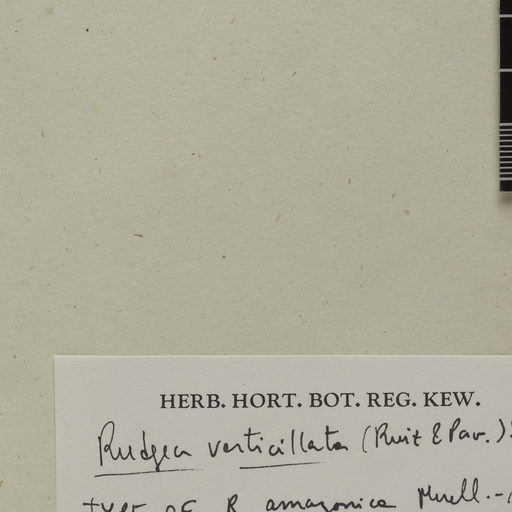 HERB. HORT. BOT. REG. KEW.
Rudgea verticillata (Ruiz & Pav.)
type of R. amazonica Muell.-